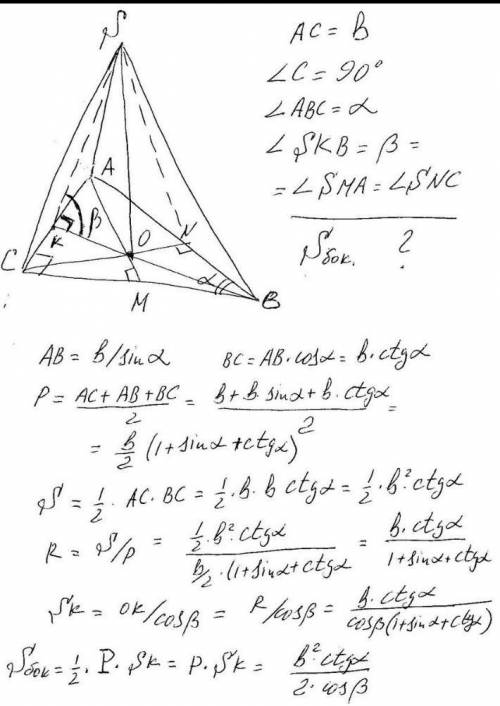 S
A
β
K
O
N
C
α
M
B
AC = в
∠C = 90°
∠ABC = α
∠SKB = β =
= ∠SMA = ∠SNC
Sбок. ?
AB = в/sinα BC = AB·cosα = в·ctgα
P = (AC + AB + BC)/2 = (в + в·sinα + в·ctgα)/2 =
= в/2 (1 + sinα + ctgα)
S = 1/2 · AC · BC = 1/2 · в · в ctgα = 1/2 · в² · ctgα
R = S/p = (1/2 · в² · ctgα)/(в/2 · (1 + sinα + ctgα) = (в · ctgα)/(1 + sinα + ctgα)
SK = OK/cosβ = R/cosβ = (в · ctgα)/(cosβ(1 + sinα + ctgα))
Sбок = 1/2 · P · SK = p · SK = (в² · ctgα)/(2 · cosβ)